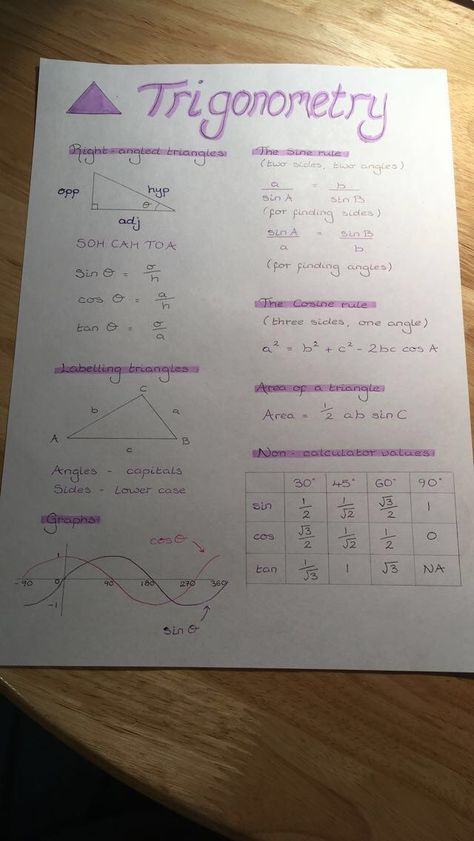 Trigonometry
Right-angled triangles
opp
hyp
θ
adj
SOH CAH TOA
sin θ = o/h
cos θ = a/h
tan θ = o/a
Labelling triangles
C
b
a
A
B
c
Angles - capitals
Sides - lower case
Graphs
cos θ
1
-90 0 90 180 270 360
-1
sin θ
The Sine rule
(two sides, two angles)
a/sin A = b/sin B
(for finding sides)
sin A/a = sin B/b
(for finding angles)
The Cosine rule
(three sides, one angle)
a² = b² + c² - 2bc cos A
Area of a triangle
Area = 1/2 ab sin C
Non - calculator values
30° 45° 60° 90°
sin 1/2 1/√2 √3/2 1
cos √3/2 1/√2 1/2 0
tan 1/√3 1 √3 NA